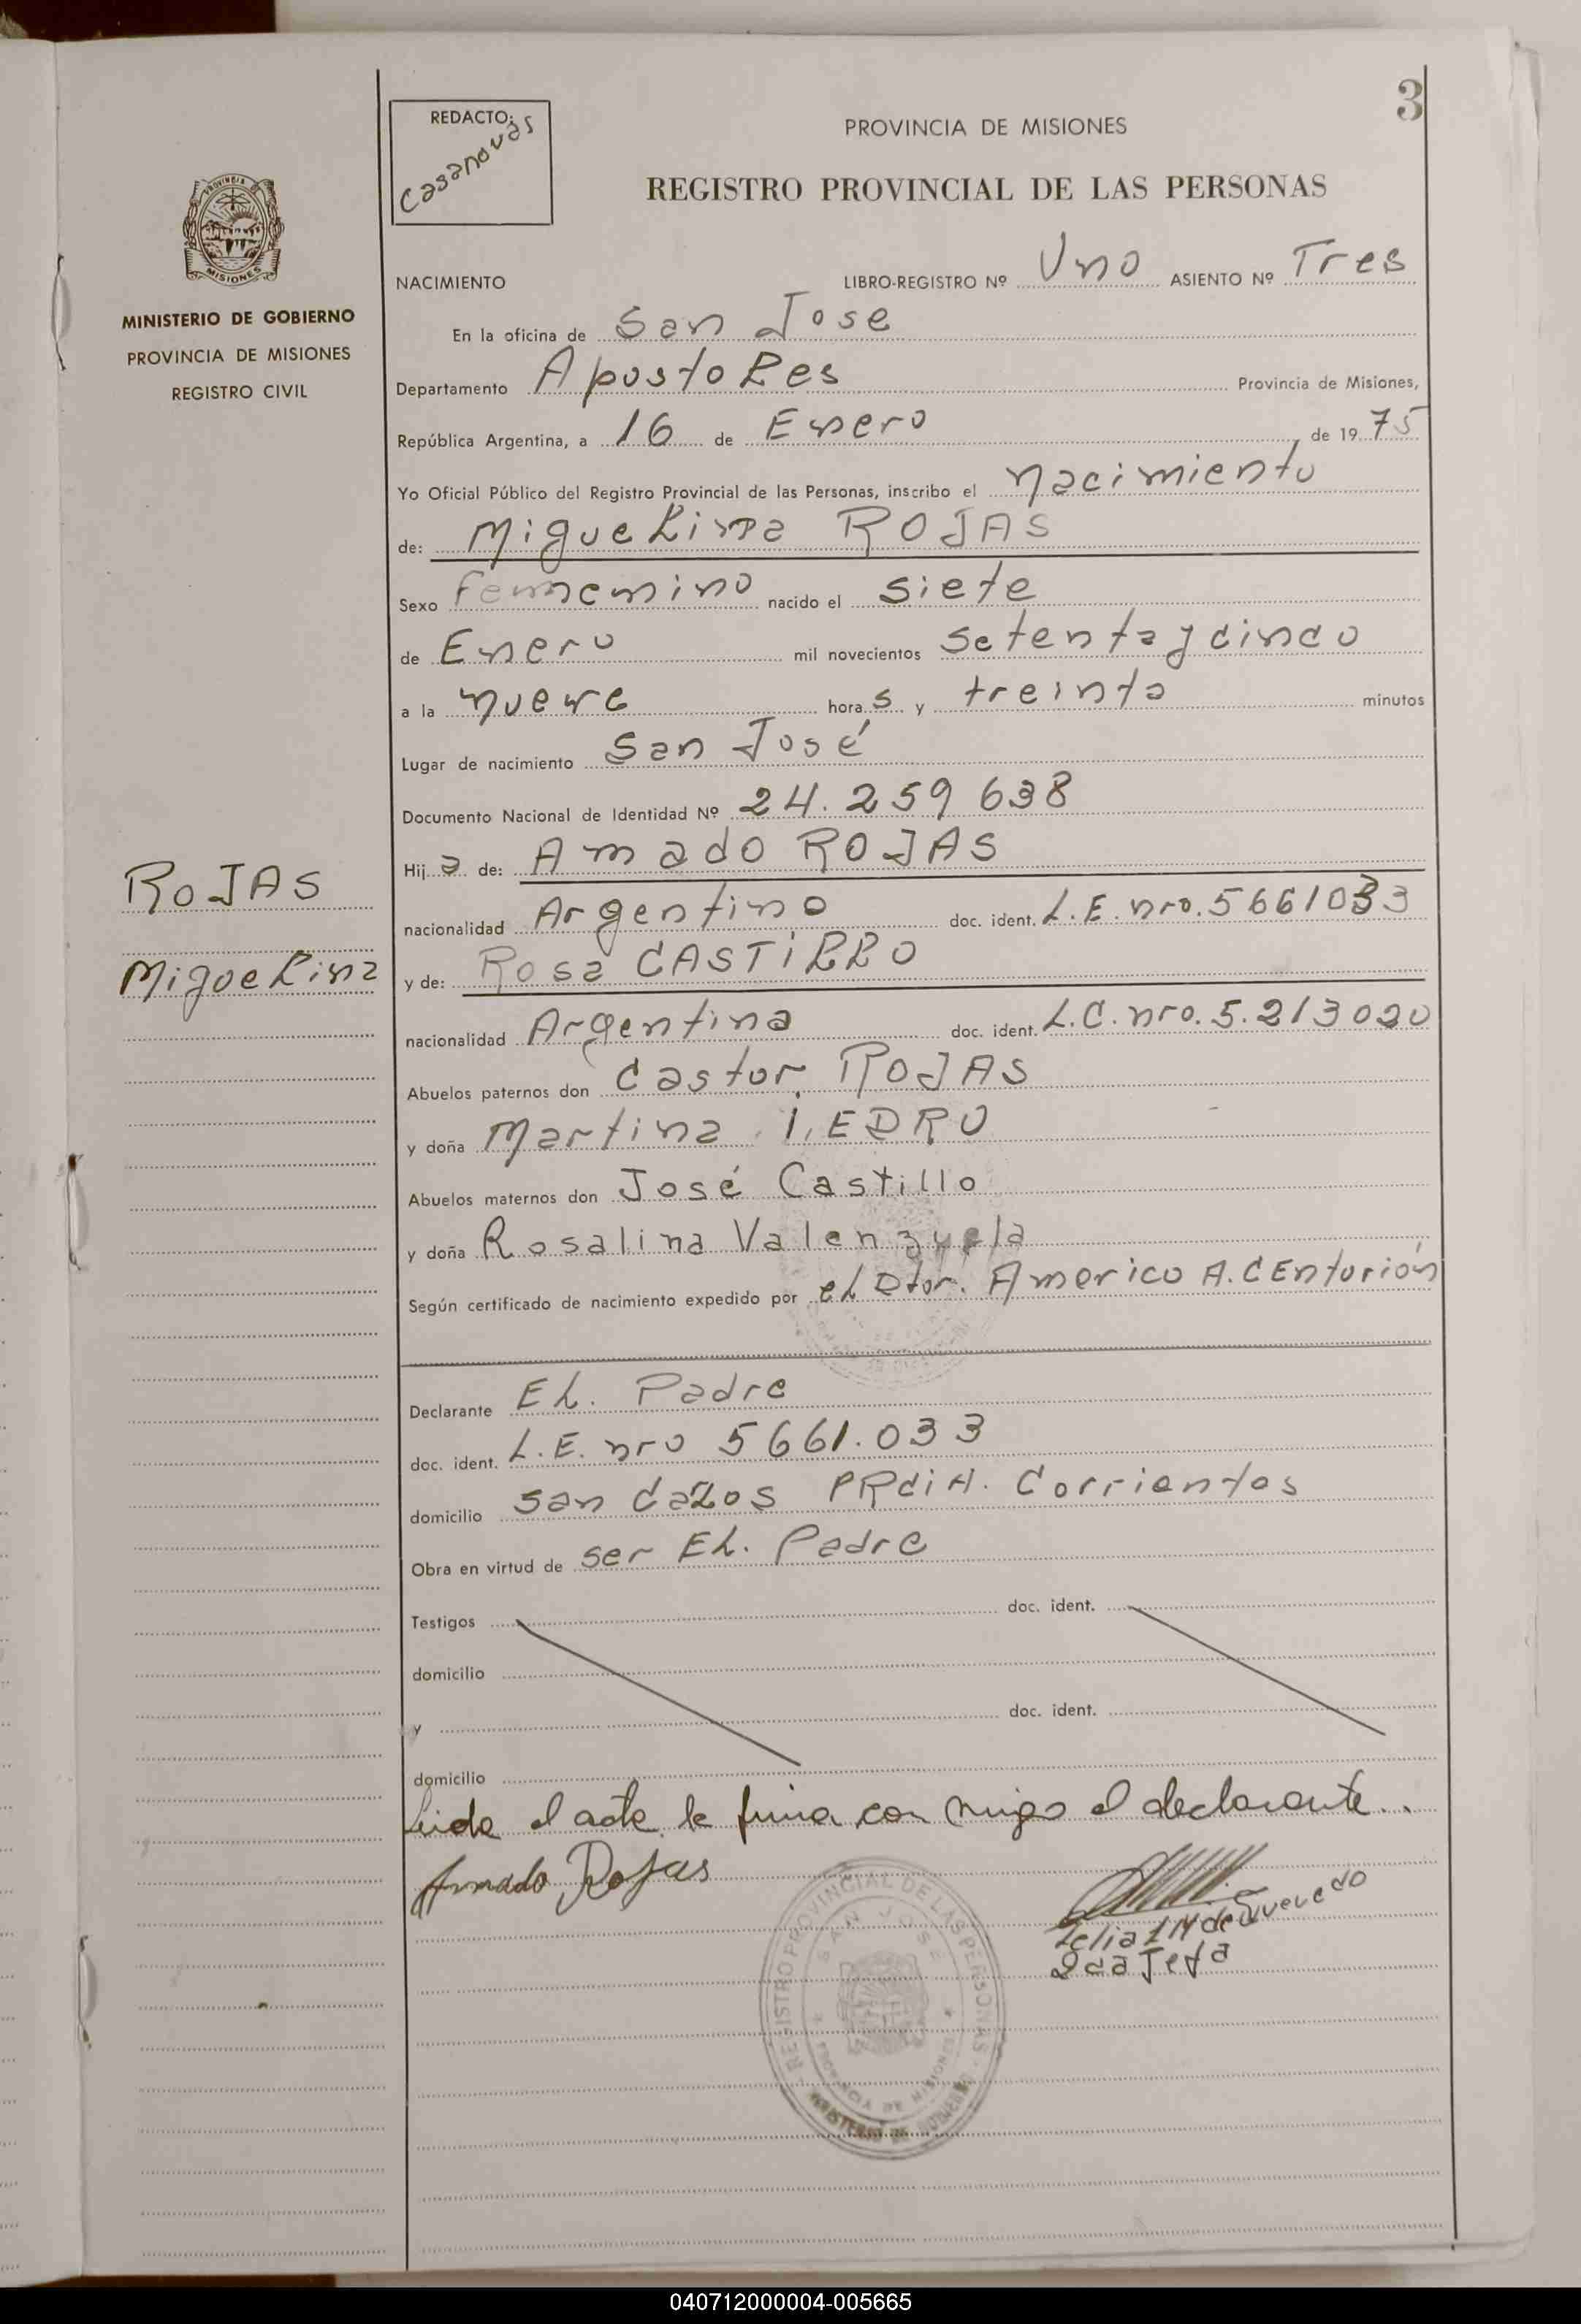 3
REDACTO:
Casanovas
PROVINCIA DE MISIONES
REGISTRO PROVINCIAL DE LAS PERSONAS
PROVINCIA
MISIONES
MINISTERIO DE GOBIERNO
PROVINCIA DE MISIONES
REGISTRO CIVIL
NACIMIENTO LIBRO-REGISTRO Nº Uno ASIENTO Nº Tres
En la oficina de San Jose
Departamento Apostoles Provincia de Misiones,
República Argentina, a 16 de Enero de 1975
Yo Oficial Público del Registro Provincial de las Personas, inscribo el nacimiento
de: Miguelina ROJAS
Sexo nacido el siete
de Enero mil novecientos setenta y cinco
a la nueve horas y treinta minutos
Lugar de nacimiento San José
Documento Nacional de Identidad Nº 24.259 638
Hija de: Amado ROJAS
ROJAS
nacionalidad Argentino doc. ident. L.E. nro. 5661033
Miguelina
y de: Rosa CASTILLO
nacionalidad Argentina doc. ident. L.C. nro. 5.213020
Abuelos paternos don Castor ROJAS
y doña Martina
Abuelos maternos don José Castillo
y doña Rosalina Valenzuela
Según certificado de nacimiento expedido por el Dtor. Americo A. CEnturión
Declarante EL. Padre
doc. ident. L.E. nro 5661.033
domicilio San Corrientes
Obra en virtud de ser EL. Padre
Testigos doc. ident.
domicilio
y doc. ident.
domicilio
Leida el acta la firma con migo el declarante..
Amado Rojas
REGISTRO PROVINCIAL DE LAS PERSONAS
SAN JOSE
PROVINCIA DE MISIONES
MINISTERIO DE GOBIERNO
de Quevedo
Jefa
040712000004-005665